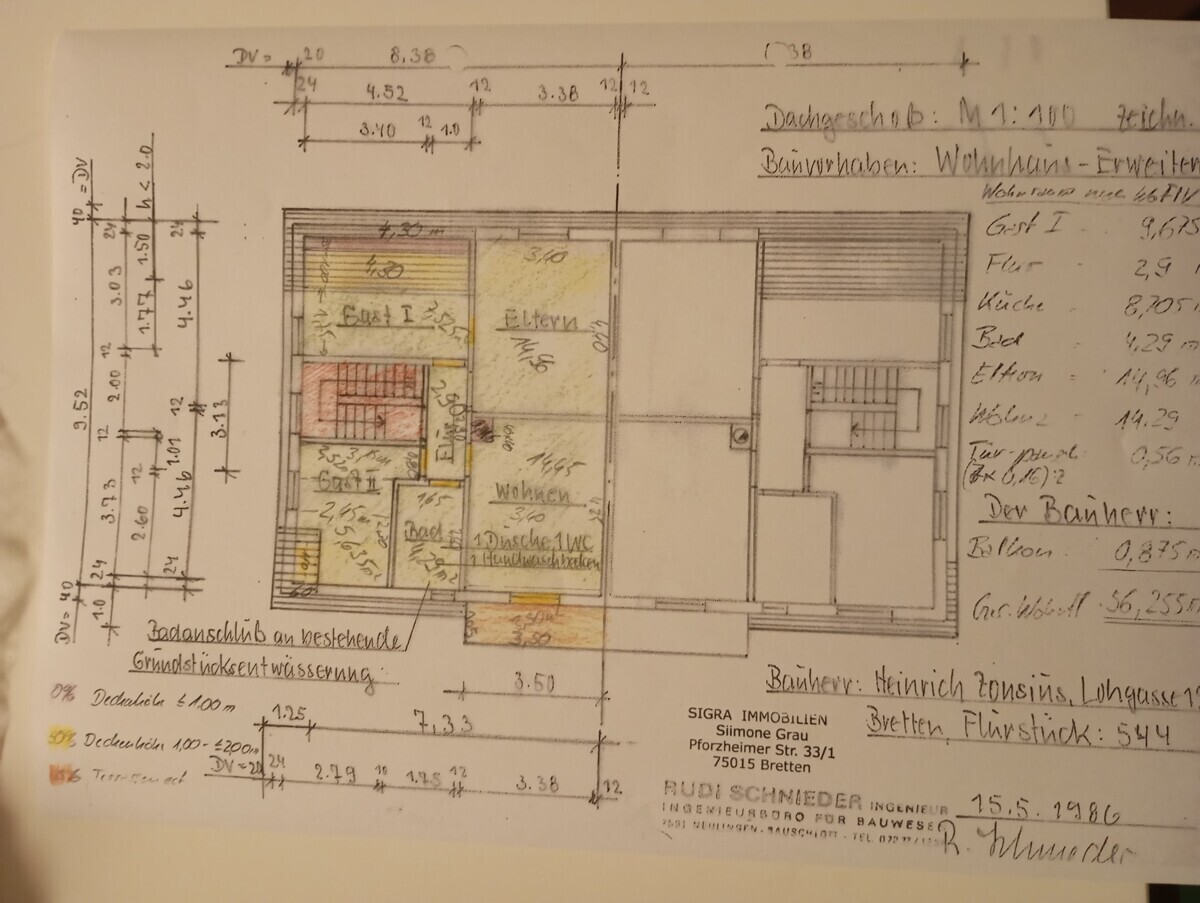 DV = 20 8.38
24 4.52 12 3.38 12 12
3.40 12 1.0
Dachgeschoß: M 1:100 zeichn.
Bauvorhaben: Wohnhaus-Erweiter
40 = DV
24 3.03 12 2.00 12 3.73 24
9.52
1.50 h < 2.0
1.77
2.60 12
24 4.46 12 1.01 4.46 24
3.13
DV = 40
1.0
Gast I 9,675
Flur 2,9
Küche 8,705
Bad 4,29 m
Eltern = 14,96
14.29
0,56
(7 x 0,16):2
Der Bauherr:
Balkon: 0,875
56,255
4,30 m
4,30
Gast I
3,40
Eltern
14,96
4,40
2,90
Flur
Gast II
2,45 m
5,635 m²
1,65
Bad
4,29 m²
14,45
Wohnen
3,40
1 Dusche, 1 WC
1 Handwaschbecken
3,50
Badanschluß an bestehende
Grundstücksentwässerung:
3.50
0% Deckenhöhe ≤ 1.00 m
50% Deckenhöhe 1,00 - ≤ 2,00 m
1.25 7,33
DV = 20 24 2.79 10 1.75 12 3.38 12
Bauherr: Heinrich Zonsius, Lohgasse 1
Bretten, Flurstück: 544
SIGRA IMMOBILIEN
Siimone Grau
Pforzheimer Str. 33/1
75015 Bretten
RUDI SCHNIEDER INGENIEUR
INGENIEURBÜRO FÜR BAUWESE
NEULINGEN-BAUSCHLOTT - TEL.
15.5.1986
R. Schnieder